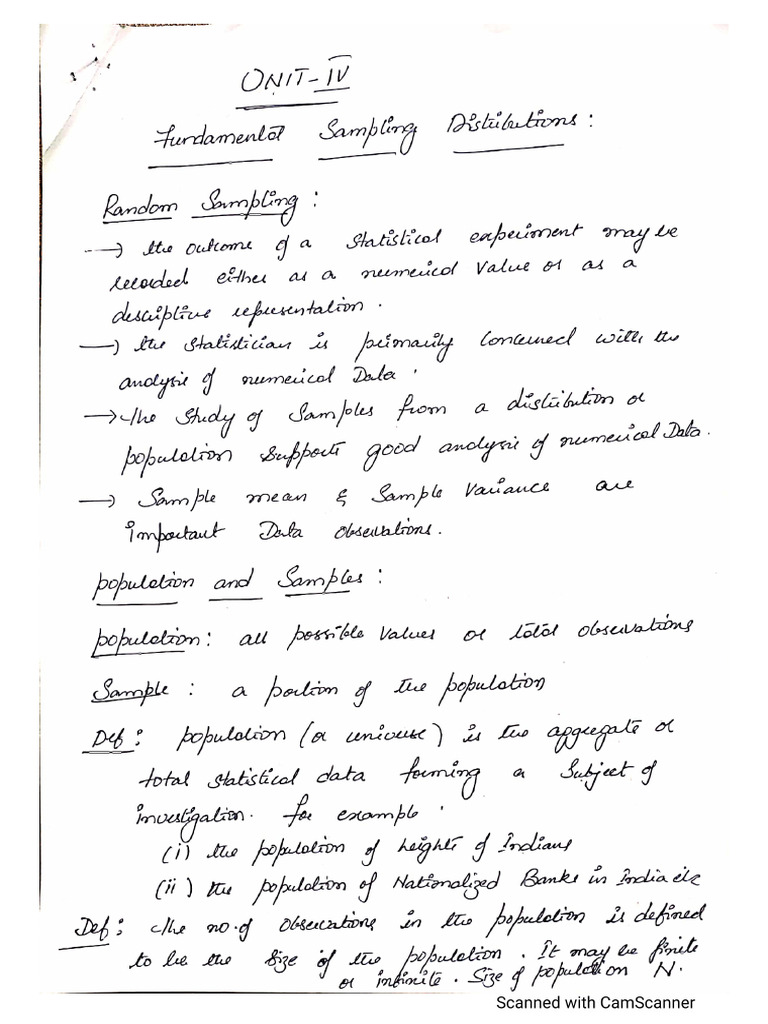 UNIT-IV
Fundamental Sampling Distributions:
Random Sampling:
→ the outcome of a statistical experiment may be
recorded either as a numerical value or as a
descriptive representation.
→ the statistician is primarily concerned with the
analysis of numerical Data.
→ the study of samples from a distribution or
population supports good analysis of numerical Data.
→ Sample mean & Sample Variance are
important Data observations.
population and Samples:
population: all possible values or total observations
Sample: a portion of the population
Def: population (or universe) is the aggregate or
total statistical data forming a subject of
investigation. for example.
(i) the population of heights of Indians
(ii) the population of Nationalized Banks in India etc
Def: The no. of observations in the population is defined
to be the size of the population. It may be finite
or infinite. Size of population N.
Scanned with CamScanner